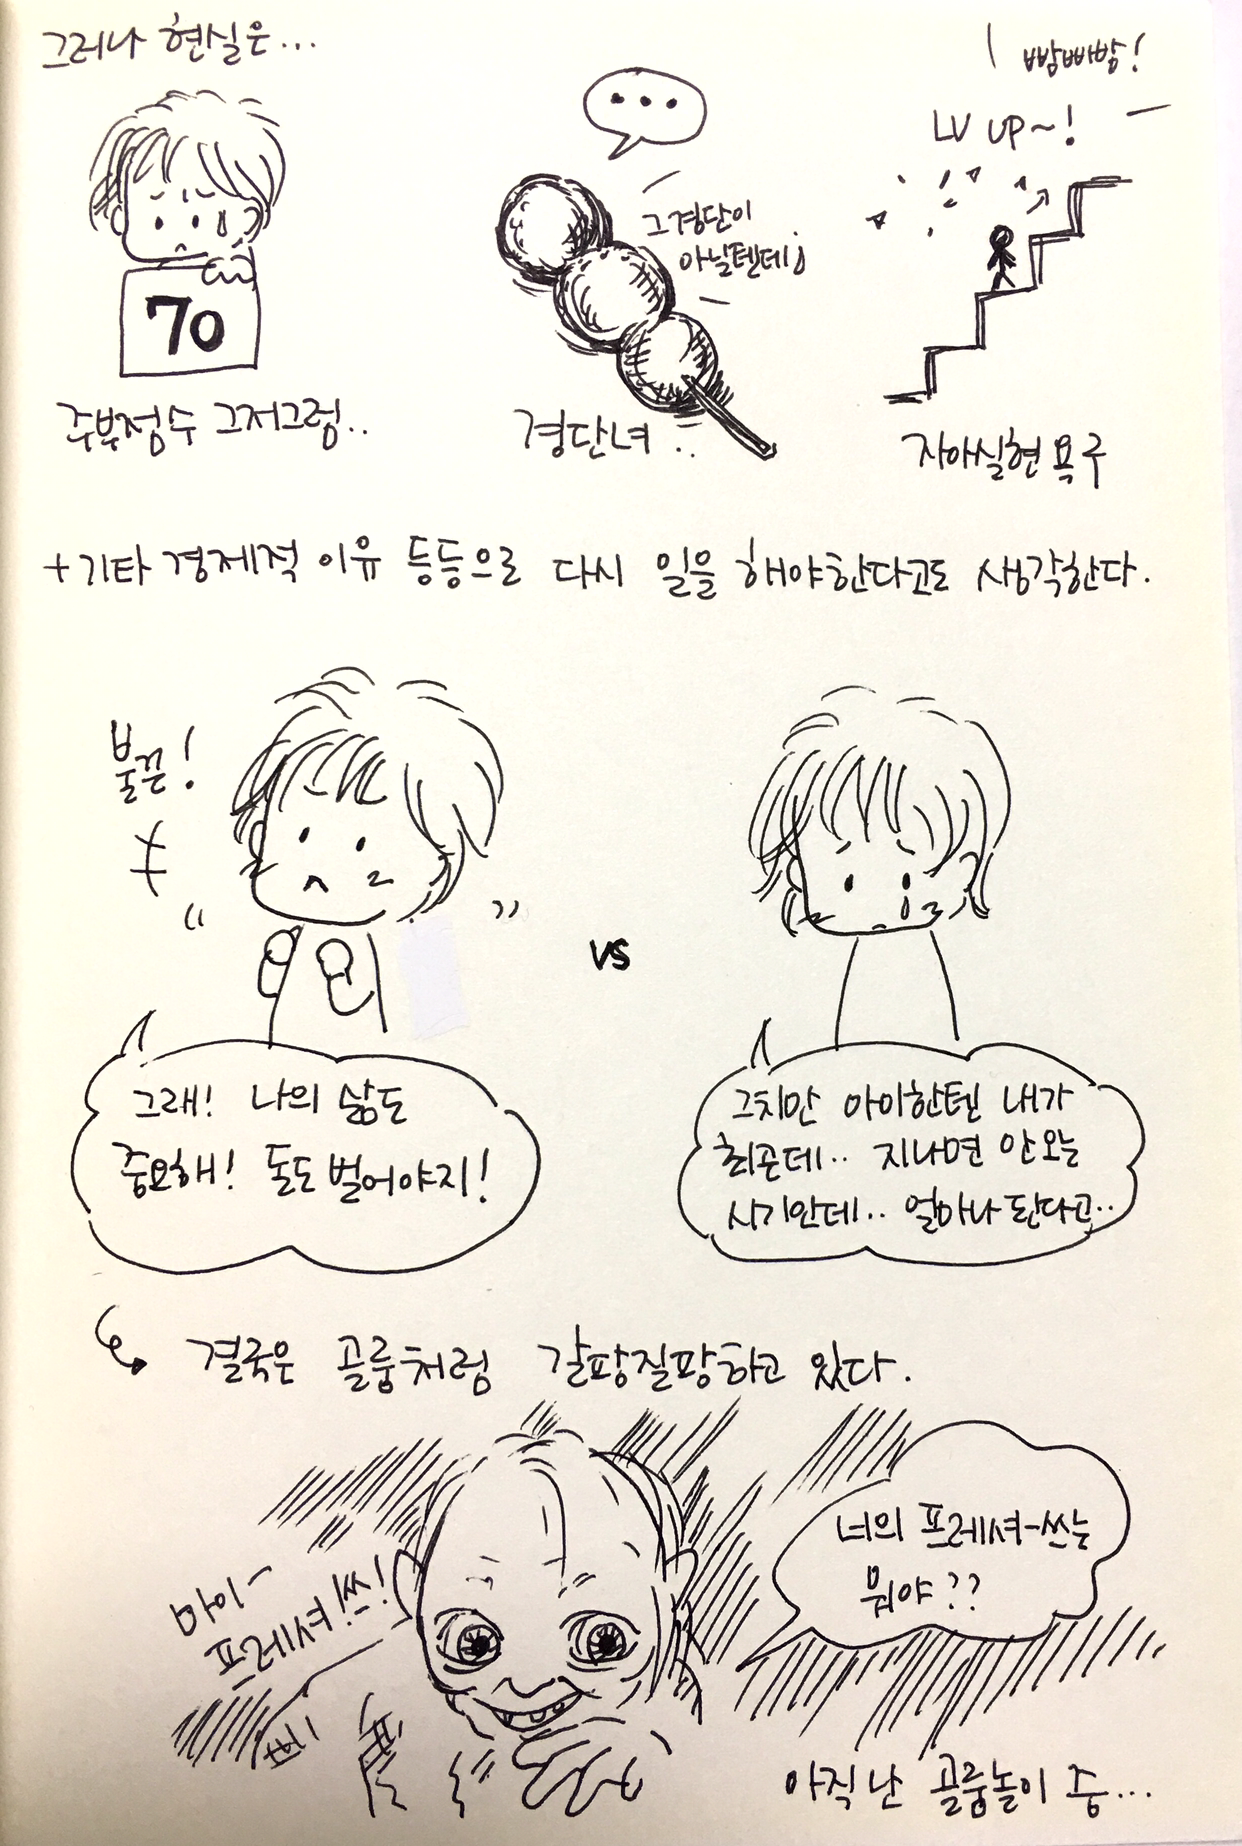 그러나 현실은...
70
주부점수 그저그럼..
...
그경단이
아닐텐데;
경단녀..
빰빠밤!
LV UP~!
자아실현 욕구
+기타 경제적 이유 등등으로 다시 일을 해야한다고도 생각한다.
불끈!
그래! 나의 삶도
중요해! 돈도 벌어야지!
vs
그치만 아이한텐 내가
최곤데.. 지나면 안오는
시기인데.. 얼마나 된다고..
결국은 골룸처럼 갈팡질팡하고 있다.
마이~
프레셔쓰!
너의 프레셔~쓰는
뭐야??
아직 난 골룸놀이 중...